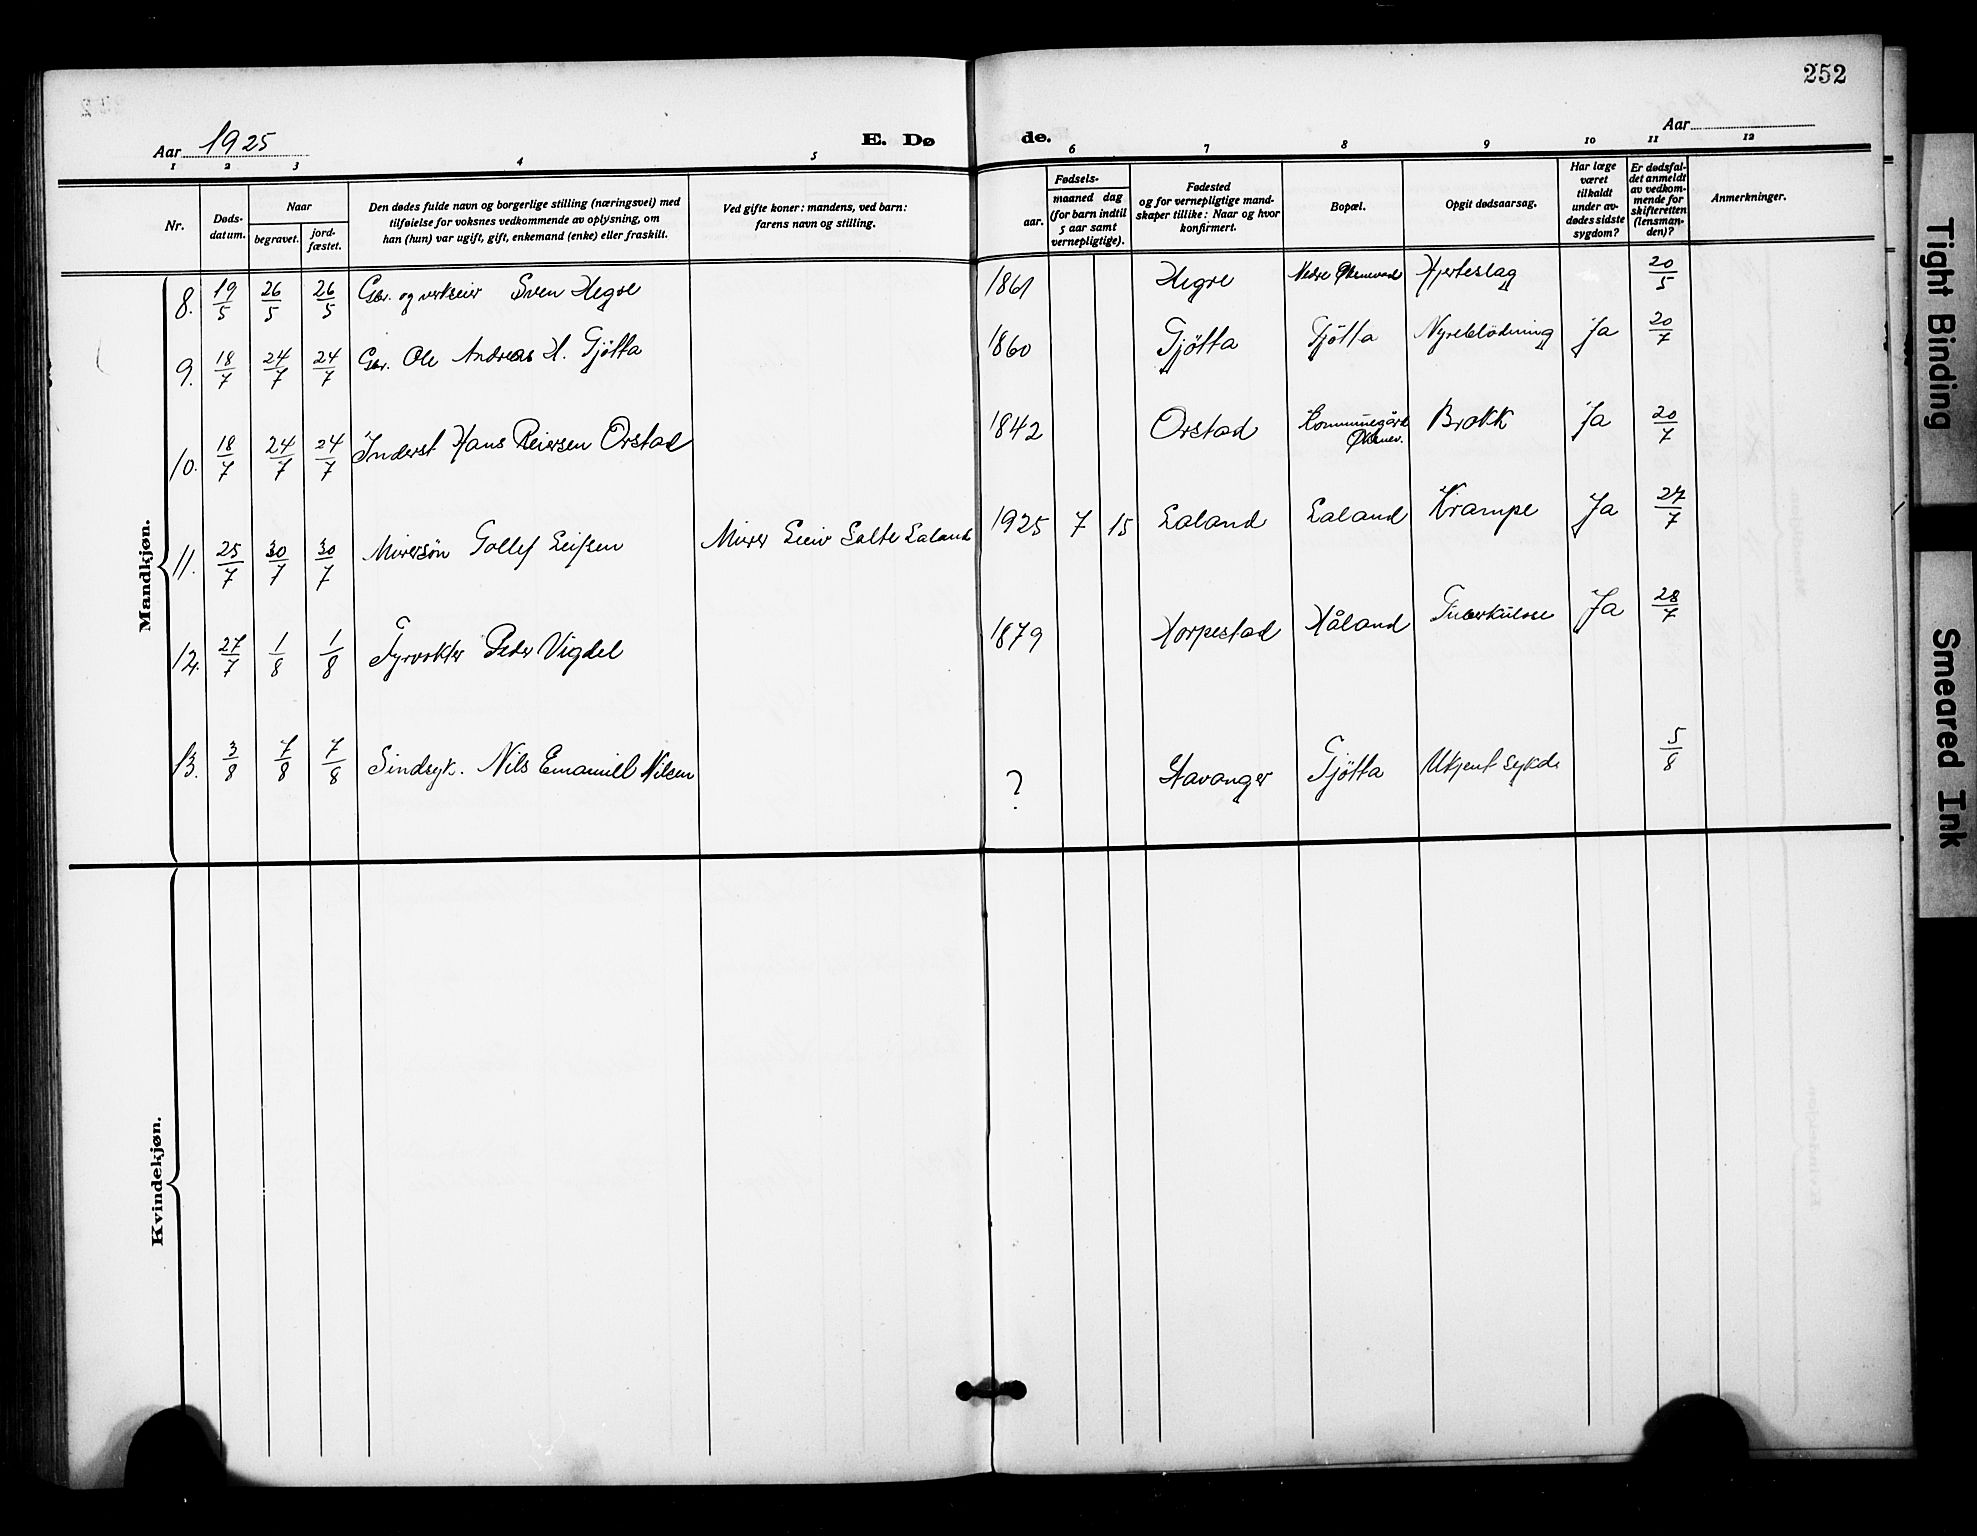 252
Aar 1925
E. Dø de.
Aar
1 2 3 4 5 6 7 8 9 10 11 12
Nr.
Døds-
datum.
Naar
begravet.
jord-
fæstet.
Den dødes fulde navn og borgerlige stilling (næringsvei) med
tilføielse for voksnes vedkommende av oplysning, om
han (hun) var ugift, gift, enkemand (enke) eller fraskilt.
Ved gifte koner: mandens, ved barn:
farens navn og stilling.
Fødsels-
aar.
maaned dag
(for barn indtil
5 aar samt
vernepligtige).
Fødested
og for vernepligtige mand-
skaper tillike: Naar og hvor
konfirmert.
Bopæl.
Opgit dødsaarsag.
Har læge
været
tilkaldt
under av-
dødes sidste
sygdom?
Er dødsfal-
det anmeldt
av vedkom-
mende for
skifteretten
(lensman-
den)?
Anmerkninger.
Mandkjøn.
8. 19/5 26/5 26/5 Gbr. og verkseier Sven Hegre 1861 Hegre Nedre Øksnevad Hjerteslag 20/5
9. 18/7 24/7 24/7 Gbr. Ole Andreas H. Tjøtta 1860 Tjøtta Tjøtta Nyreblødning Ja 20/7
10. 18/7 24/7 24/7 Inderst Hans Reiersen Orstad 1842 Orstad Kommunegård Øksnev. Brokk Ja 20/7
11. 25/7 30/7 30/7 Murersøn Tollef Leifsen Murer Leiv Salte Laland 1925 7 15 Laland Laland Krampe Ja 27/7
12. 27/7 1/8 1/8 Fyrvokter Peder Vigdel 1879 Horpestad Håland Tuberkulose Ja 28/7
13. 3/8 7/8 7/8 Sindsyk. Nils Emanuel Nilsen ? Stavanger Tjøtta Ukjent sykd. 5/8
Kvindekjøn.
Tight Binding
Smeared Ink